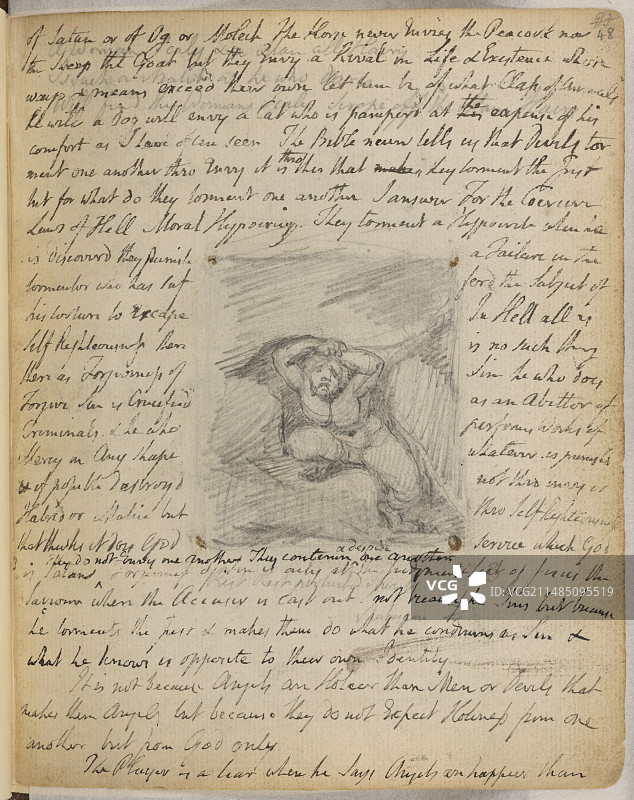 48
of Satan or of Og or Molech The Horse never Envies the Peacock nor
the Sheep the Goat but they Envy a Rival in Life & Existence whose
ways & means exceed their own let him be of what Class of Animals
he will a Dog will envy a Cat who is pamperd at the expense of his
comfort as I have often seen The Bible never tells us that Devils tor
ment one another thro Envy it is thro this that they torment the Just
but for what do they torment one another I answer For the Coercive
Laws of Hell Moral Hypocrisy. They torment a Hypocrite when he
is discoverd they punish a Failure in the
tormentor who has sufferd the Subject of
his torture to Escape In Hell all is
Self Righteousness there is no such thing
there as Forgiveness of Sin he who does
Forgive Sin is Crucified as an Abettor of
Criminals. & he who performs Works of
Mercy in Any Shape whatever is punishd
& if possible destroyd not thro envy or
Hatred or Malice but thro Self Righteousness
that thinks it does God service which God
is Satan They do not Envy one another They contemn & despise one another
Forgiveness of Sin is only at the Judgment Seat of Jesus the
Saviour where the Accuser is cast out. not because he Sins but because
he torments the Just & makes them do what he condemns as Sin &
what he knows is opposite to their own Identity
It is not because Angels are Holier than Men or Devils that
makes them Angels but because they do not Expect Holiness from one
another but from God only
The Player is a liar when he Says Angels are happier than
VCG
VCG211485095519